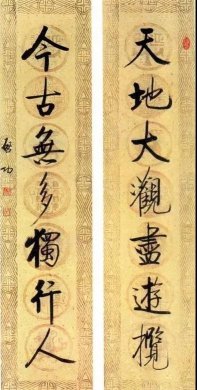 天地大觀盡遊覽
今古無多獨行人
啓功